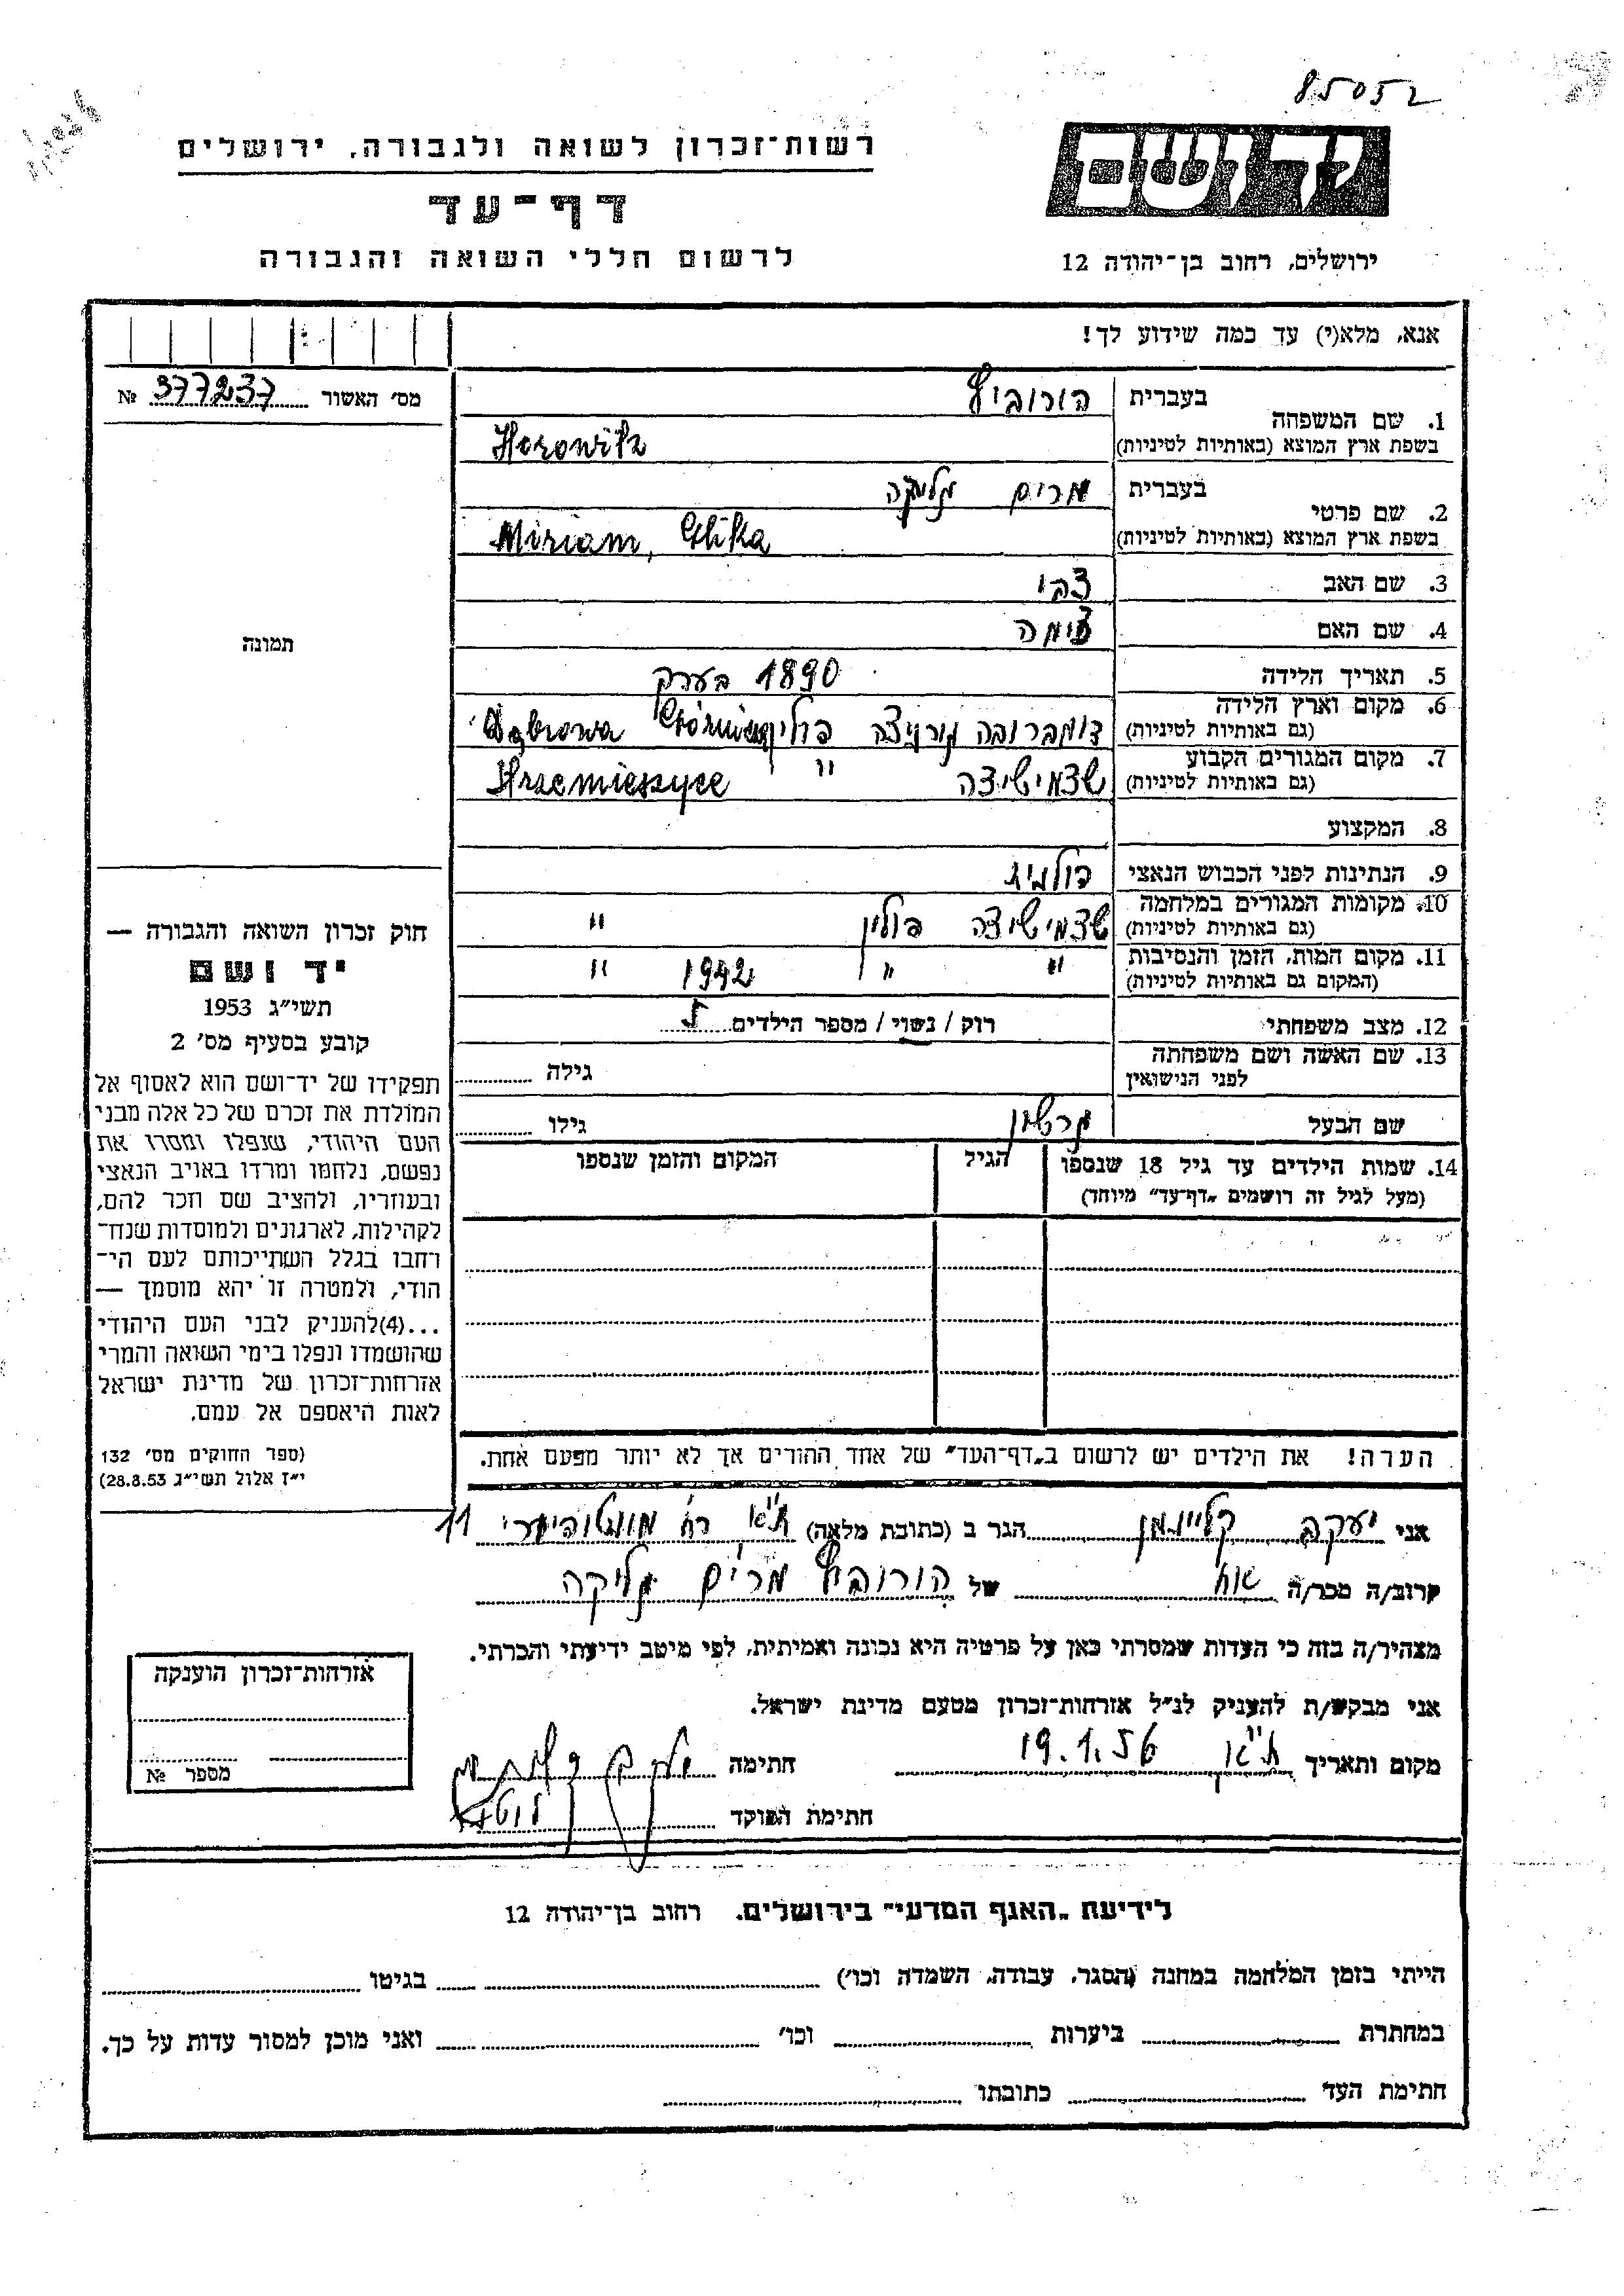 85052
רשות־זכרון לשואה ולגבורה, ירושלים
יד ושם
דף־עד
לרשום חללי השואה והגבורה
ירושלים, רחוב בן־יהודה 12
אנא, מלא(י) עד כמה שידוע לך!
מס׳ האשור 377237 №
תמונה
1. שם המשפחה בעברית הורוביץ
בשפת ארץ המוצא (באותיות לטיניות) Horowitz
2. שם פרטי בעברית מרים גליקה
בשפת ארץ המוצא (באותיות לטיניות) Miriam, Glika
3. שם האב צבי
4. שם האם
5. תאריך הלידה 1890 בערך
6. מקום וארץ הלידה (גם באותיות לטיניות) דומברובה גורניצה פולין Dąbrowa Górnicza
7. מקום המגורים הקבוע (גם באותיות לטיניות) שצמישיצה " Strzemieszyce
8. המקצוע
9. הנתינות לפני הכבוש הנאצי פולנית
10. מקומות המגורים במלחמה (גם באותיות לטיניות) שצמישיצה פולין "
11. מקום המות, הזמן והנסיבות (המקום גם באותיות לטיניות) " " 1942 "
12. מצב משפחתי רוק / נשוי / מספר הילדים 5
13. שם האשה ושם משפחתה לפני הנישואין גילה
שם הבעל גרשון גילו
14. שמות הילדים עד גיל 18 שנספו הגיל המקום והזמן שנספו
(מעל לגיל זה רושמים „דף־עד" מיוחד)
הערה! את הילדים יש לרשום ב„דף־העד" של אחד ההורים אך לא יותר מפעם אחת.
חוק זכרון השואה והגבורה —
יד ושם
תשי״ג 1953
קובע בסעיף מס׳ 2
תפקידו של יד־ושם הוא לאסוף אל
המולדת את זכרם של כל אלה מבני
העם היהודי, שנפלו ומסרו את
נפשם, נלחמו ומרדו באויב הנאצי
ובעוזריו, ולהציב שם וזכר להם,
לקהילות, לארגונים ולמוסדות שנח־
רחבו בגלל השתייכותם לעם הי־
הודי, ולמטרה זו יהא מוסמך —
...(4)להעניק לבני העם היהודי
שהושמדו ונפלו בימי השואה והמרי
אזרחות־זכרון של מדינת ישראל
לאות היאספם אל עמם.
(ספר החוקים מס׳ 132
י״ז אלול תשי״ג 28.8.53)
אני יעקב קליינמן הגר ב (כתובת מלאה) ת״א רח׳ מונטיפיורי 11
קרוב/ה מכר/ה אח של הורוביץ מרים גליקה
מצהיר/ה בזה כי העדות שמסרתי כאן על פרטיה היא נכונה ואמיתית, לפי מיטב ידיעתי והכרתי.
אני מבקש/ת להעניק לנ״ל אזרחות־זכרון מטעם מדינת ישראל.
מקום ותאריך ת״א 19.1.56 חתימה
חתימת הפוקד
אזרחות־זכרון הוענקה
מספר №
לידיעת „האגף המדעי" בירושלים. רחוב בן־יהודה 12
הייתי בזמן המלחמה במחנה (הסגר, עבודה, השמדה וכו׳) בגיטו
במחתרת ביערות וכו׳ ואני מוכן למסור עדות על כך.
חתימת העד כתובתו